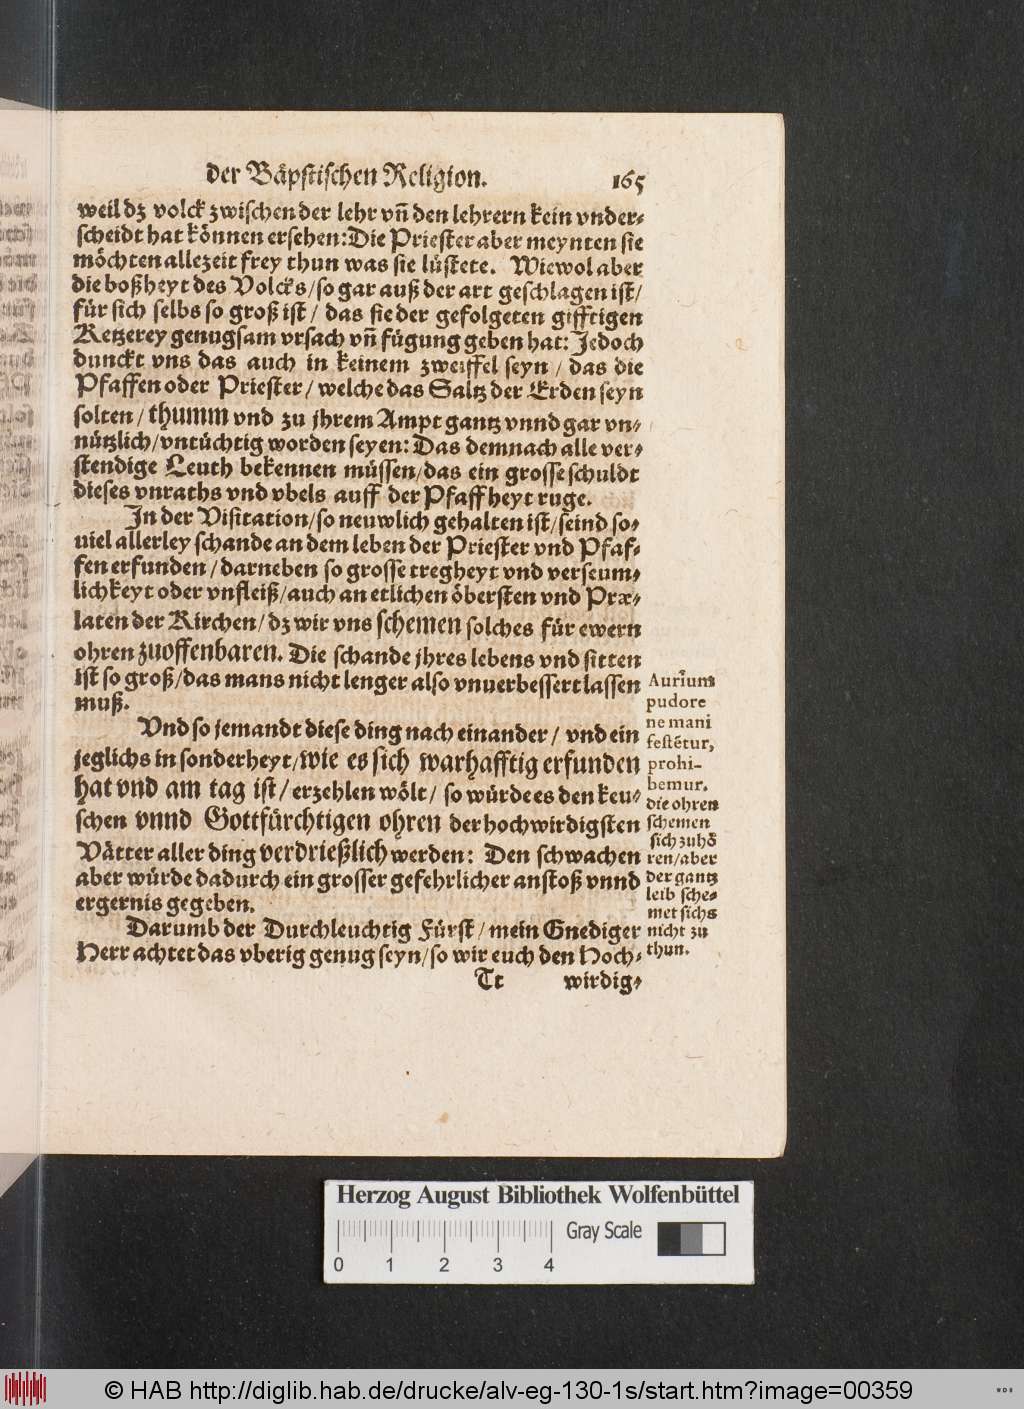 der Bäpstischen Religion. 165
weil dz volck zwischen der lehr vñ den lehrern kein vnder⸗
scheidt hat können ersehen: Die Priester aber meynten sie
möchten allezeit frey thun was sie lüstete. Wiewol aber
die boßheyt des Volcks/ so gar auß der art geschlagen ist/
für sich selbs so groß ist/ das sie der gefolgeten gifftigen
Ketzerey genugsam vrsach vñ fügung geben hat: Jedoch
dunckt vns das auch in keinem zweiffel seyn/ das die
Pfaffen oder Priester/ welche das Saltz der Erden seyn
solten/ thumm vnd zu jhrem Ampt gantz vnnd gar vn⸗
nützlich/ vntüchtig worden seyen: Das demnach alle ver⸗
stendige Leuth bekennen müssen/ das ein grosse schuldt
dieses vnraths vnd vbels auff der Pfaffheyt ruge.
In der Visitation/ so neuwlich gehalten ist/ seind so⸗
uiel allerley schande an dem leben der Priester vnd Pfaf⸗
fen erfunden/ darneben so grosse tregheyt vnd verseum⸗
lichkeyt oder vnfleiß/ auch an etlichen öbersten vnd Præ⸗
laten der Kirchen/ dz wir vns schemen solches für ewern
ohren zuoffenbaren. Die schande jhres lebens vnd sitten
ist so groß/ das mans nicht lenger also vnuerbessert lassen
muß.
Aurium
pudore
ne mani
festẽtur,
prohi-
bemur.
die ohren
schemen
sich zuhö
ren/ aber
der gantz
leib sche⸗
met sichs
nicht zu
thun.
Vnd so jemandt diese ding nach einander/ vnd ein
jeglichs in sonderheyt/ wie es sich warhafftig erfunden
hat vnd am tag ist/ erzehlen wölt/ so würde es den keu⸗
schen vnnd Gottfürchtigen ohren der hochwirdigsten
Vätter aller ding verdrießlich werden: Den schwachen
aber würde dadurch ein grosser gefehrlicher anstoß vnnd
ergernis gegeben.
Darumb der Durchleuchtig Fürst/ mein Gnediger
Herr achtet das vberig genug seyn/ so wir euch den Hoch⸗
Tt wirdig⸗
Herzog August Bibliothek Wolfenbüttel
Gray Scale
0 1 2 3 4
© HAB http://diglib.hab.de/drucke/alv-eg-130-1s/start.htm?image=00359